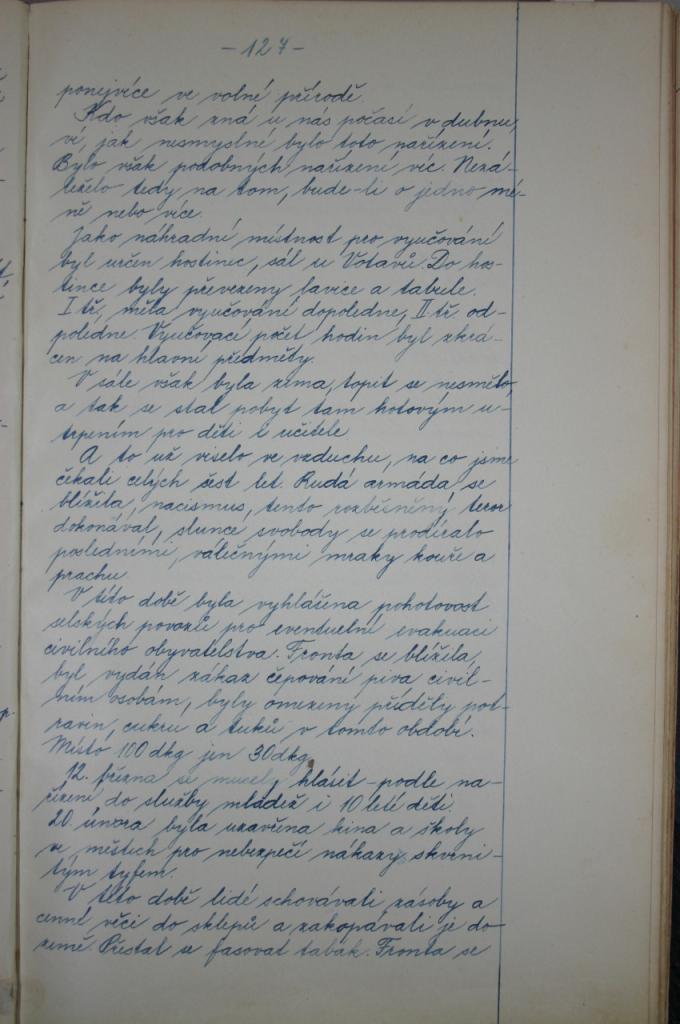 - 127 -
ponejvíce ve volné přírodě.
Kdo však zná u nás počasí v dubnu,
ví, jak nesmyslné bylo toto nařízení.
Bylo však podobných nařízení víc. Nezá-
leželo tedy na tom, bude-li o jedno mé-
ně nebo více.
Jako náhradní místnost pro vyučování
byl určen hostinec, sál u Votavů. Do hos-
tince byly převezeny lavice a tabule.
I tř. měla vyučování dopoledne, II tř. od-
poledne. Vyučovací počet hodin byl zkrá-
cen na hlavní předměty.
V sále však byla zima, topit se nesmělo,
a tak se stal pobyt tam hotovým u-
trpením pro děti i učitele
A to už viselo ve vzduchu, na co jsme
čekali celých šest let. Rudá armáda se
blížila, nacismus, tento rozběsněný teror
dokonával, slunce svobody se prodíralo
posledními, válečnými mraky kouře a
prachu.
V této době byla vyhlášena pohotovost
selských povozů pro eventuelní evakuaci
civilního obyvatelstva. Fronta se blížila,
byl vydán zákaz čepování piva civil-
ním osobám, byly omezeny příděly pot-
ravin, cukru a tuků v tomto období.
Místo 100 dkg jen 30 dkg.
12. března se musely hlásit - podle na-
řízení do služby mládež i 10 leté děti.
20. února byla uzavřena kina a školy
ve městech pro nebezpečí nákazy skvrni-
tým tyfem.
V této době lidé schovávali zásoby a
cenné věci do sklepů a zakopávali je do
země. Přestal se fasovat tabák. Fronta se